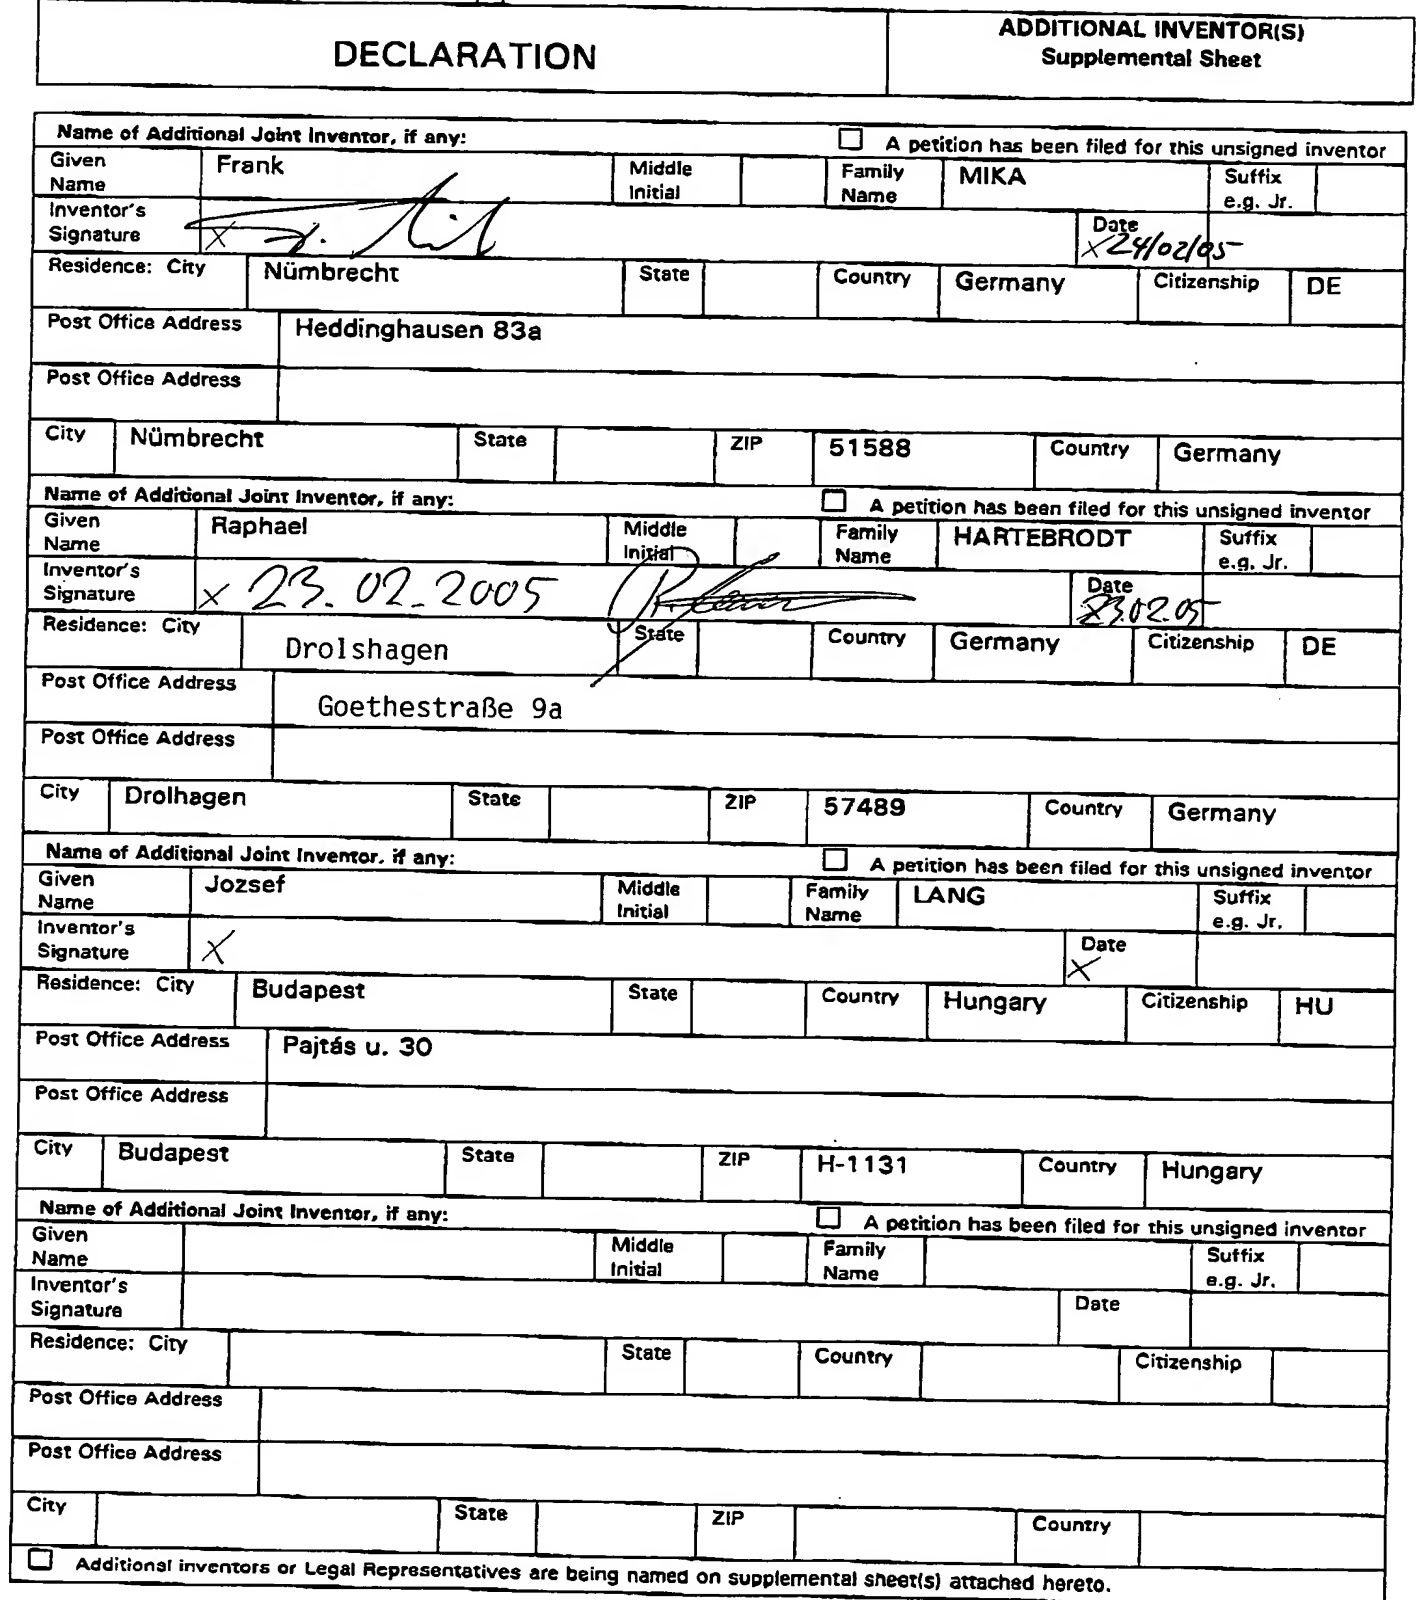 DECLARATION
ADDITIONAL INVENTOR(S)
Supplemental Sheet
Name of Additional Joint Inventor, if any:
A petition has been filed for this unsigned inventor
Given Name Frank Middle Initial Family Name MIKA Suffix e.g. Jr.
Inventor's Signature X Date X 24/02/05
Residence: City Nümbrecht State Country Germany Citizenship DE
Post Office Address Heddinghausen 83a
Post Office Address
City Nümbrecht State ZIP 51588 Country Germany
Name of Additional Joint Inventor, if any:
A petition has been filed for this unsigned inventor
Given Name Raphael Middle Initial Family Name HARTEBRODT Suffix e.g. Jr.
Inventor's Signature X 23.02.2005 Date 23.02.05
Residence: City Drolshagen State Country Germany Citizenship DE
Post Office Address Goethestraße 9a
Post Office Address
City Drolhagen State ZIP 57489 Country Germany
Name of Additional Joint Inventor, if any:
A petition has been filed for this unsigned inventor
Given Name Jozsef Middle Initial Family Name LANG Suffix e.g. Jr.
Inventor's Signature X Date X
Residence: City Budapest State Country Hungary Citizenship HU
Post Office Address Pajtás u. 30
Post Office Address
City Budapest State ZIP H-1131 Country Hungary
Name of Additional Joint Inventor, if any:
A petition has been filed for this unsigned inventor
Given Name Middle Initial Family Name Suffix e.g. Jr.
Inventor's Signature Date
Residence: City State Country Citizenship
Post Office Address
Post Office Address
City State ZIP Country
Additional inventors or Legal Representatives are being named on supplemental sheet(s) attached hereto.